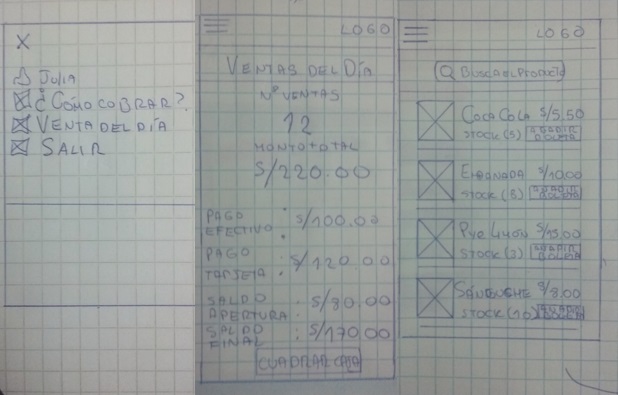 X
Julia
¿Cómo cobrar?
Venta del día
Salir
LOGO
Ventas del Día
Nº Ventas
12
Monto total
S/220.00
Pago efectivo : S/100.00
Pago tarjeta : S/120.00
Saldo apertura : S/
Saldo final : S/170.00
Cuadrar caja
LOGO
Busca el Producto
Coca Cola S/5.50
Stock (5) Añadir boleta
S/10.00
Stock (8) Añadir boleta
Pye Limón S/15.00
Stock (3) Añadir boleta
S/8.00
Stock (10) Añadir boleta